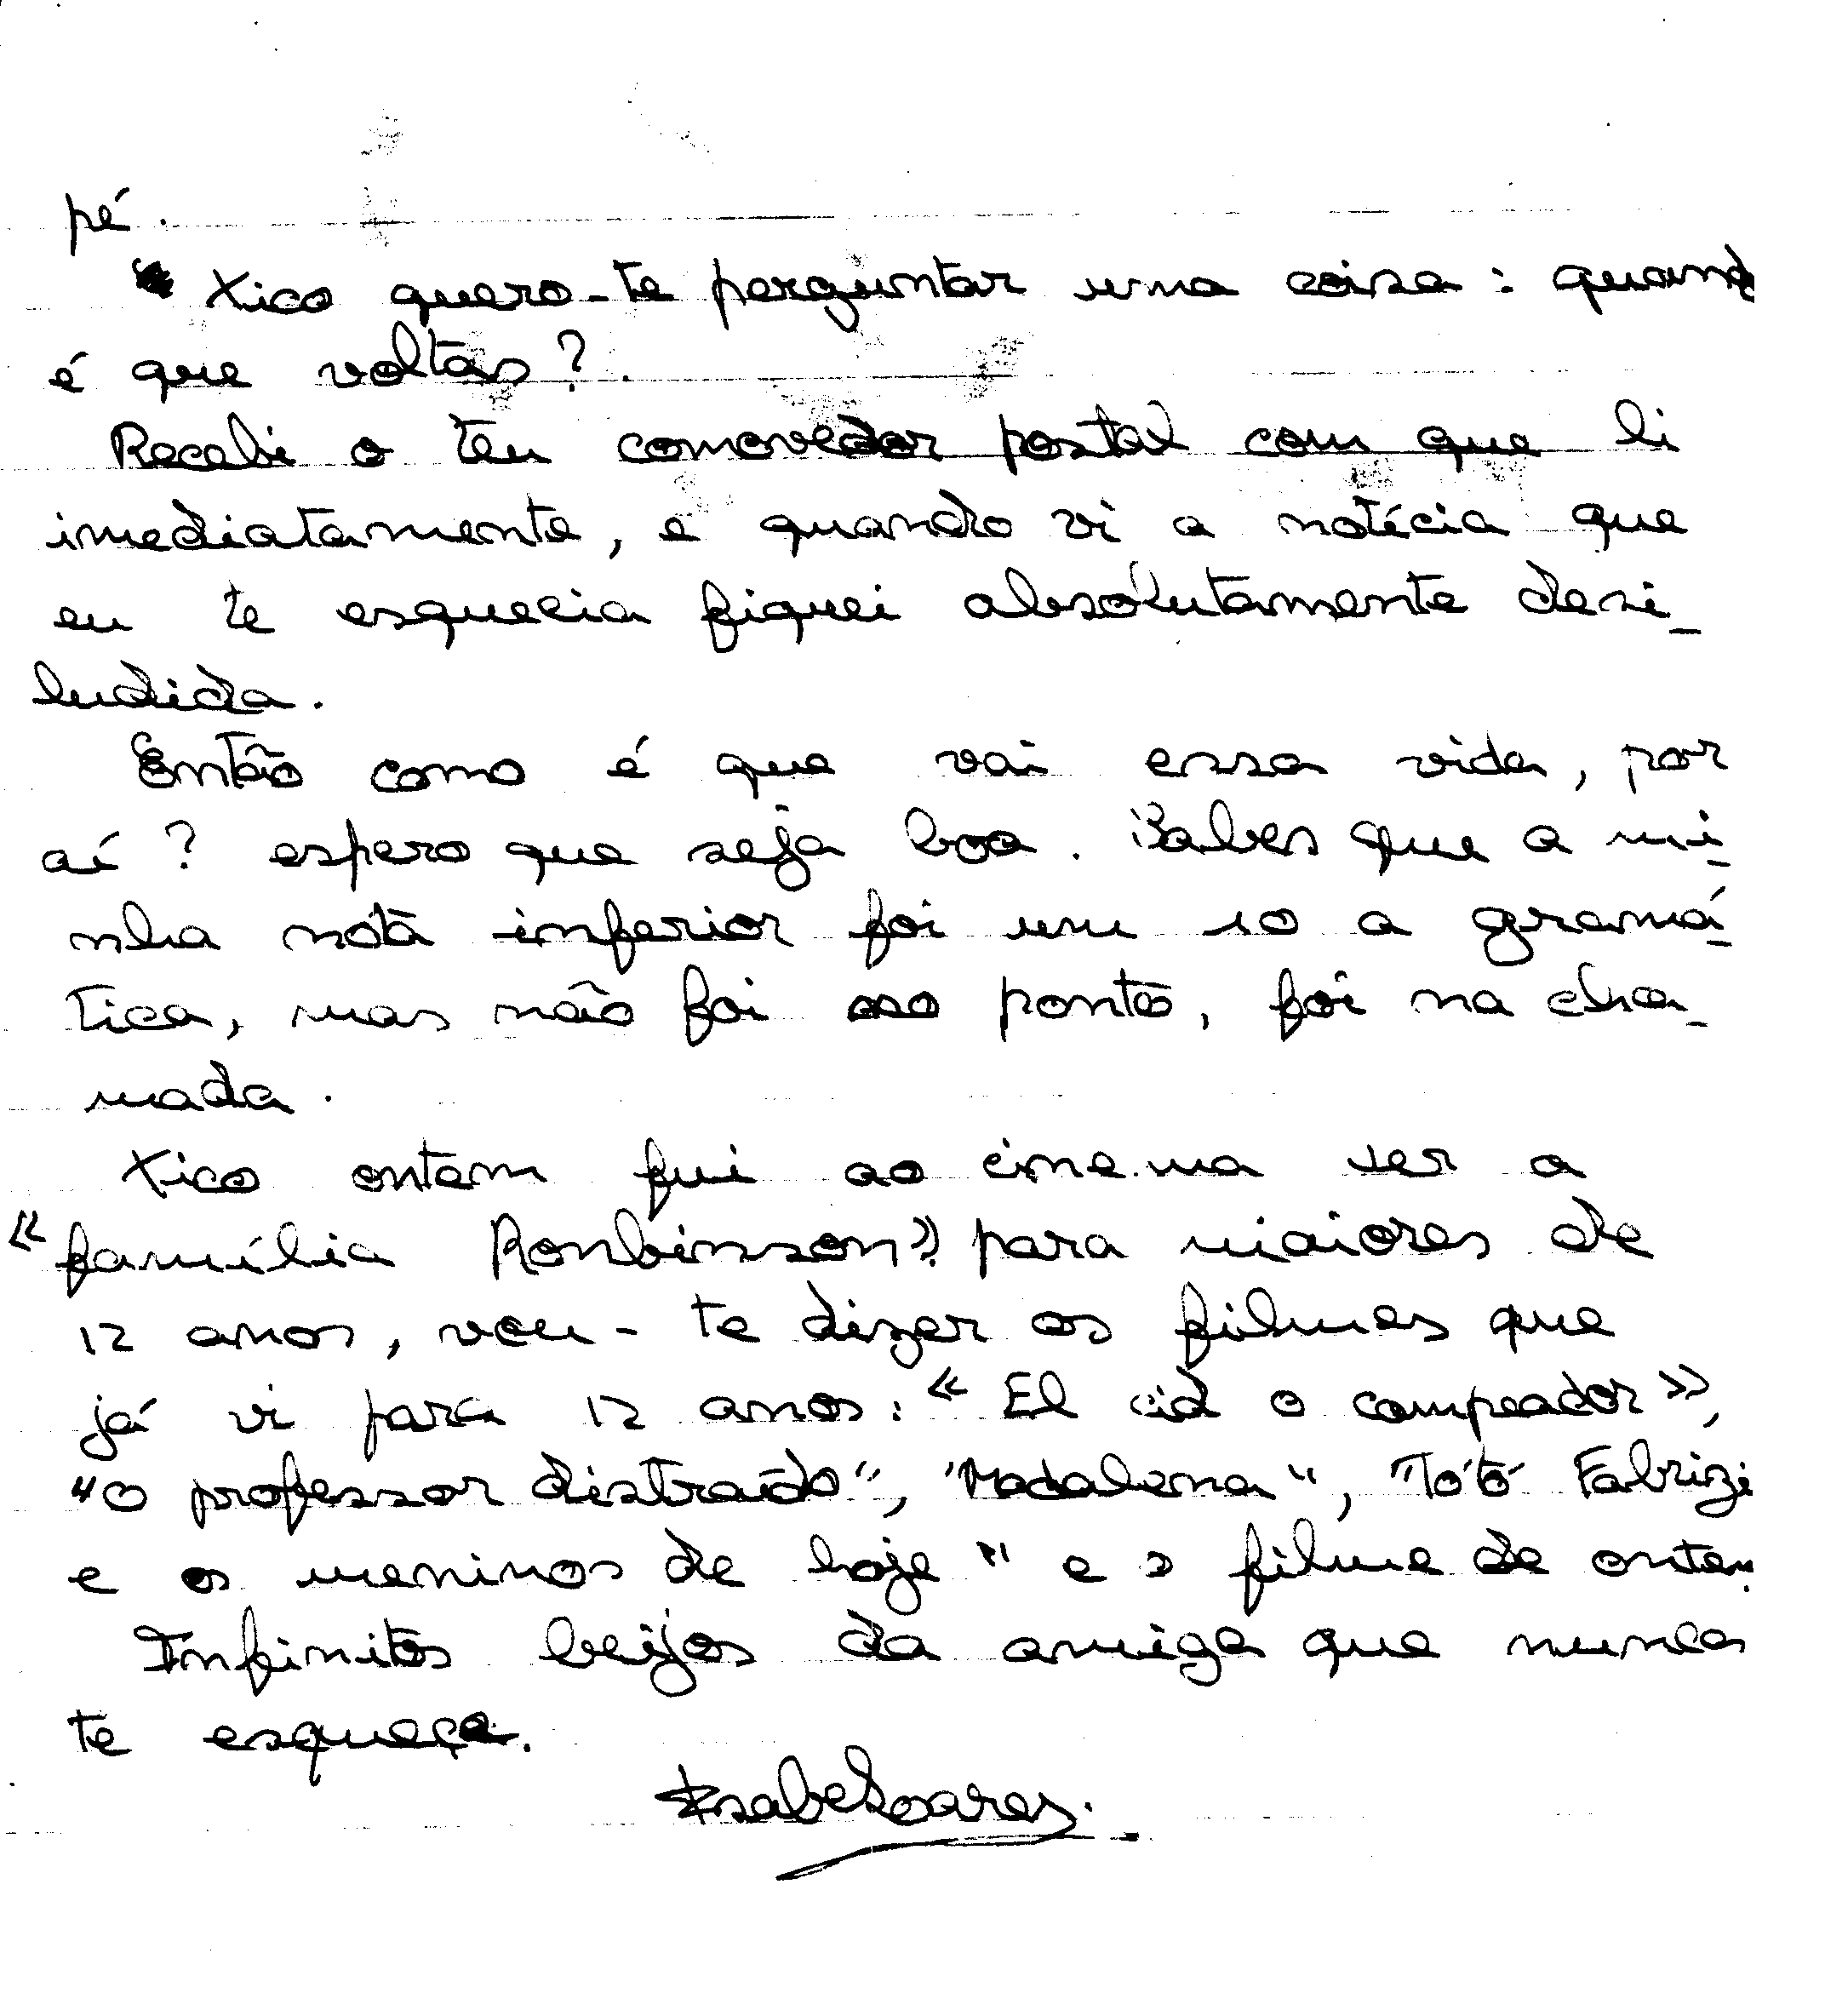 pé.
Xico quero-te perguntar uma coisa: quando
é que voltas?
Recebi o teu comovedor postal com que li
imediatamente, e quando vi a notícia que
eu te esquecia fiquei absolutamente desi-
ludida.
Então como é que vai essa vida, por
aí? espero que seja boa. Sabes que a mi-
nha nota inferior foi um 10 a gramá-
tica, mas não foi no ponto, foi na cha-
mada.
Xico ontem fui ao cinema ver a
«família Ronbinsson» para maiores de
12 anos, vou-te dizer os filmes que
já vi para 12 anos: «El cid o campeador»,
"O professor distraído", "Madalena", "Tótó Fabrizi
e os meninos de hoje" e o filme de ontem.
Infinitos beijos da amiga que nunca
te esquece.
Isabel Soares.